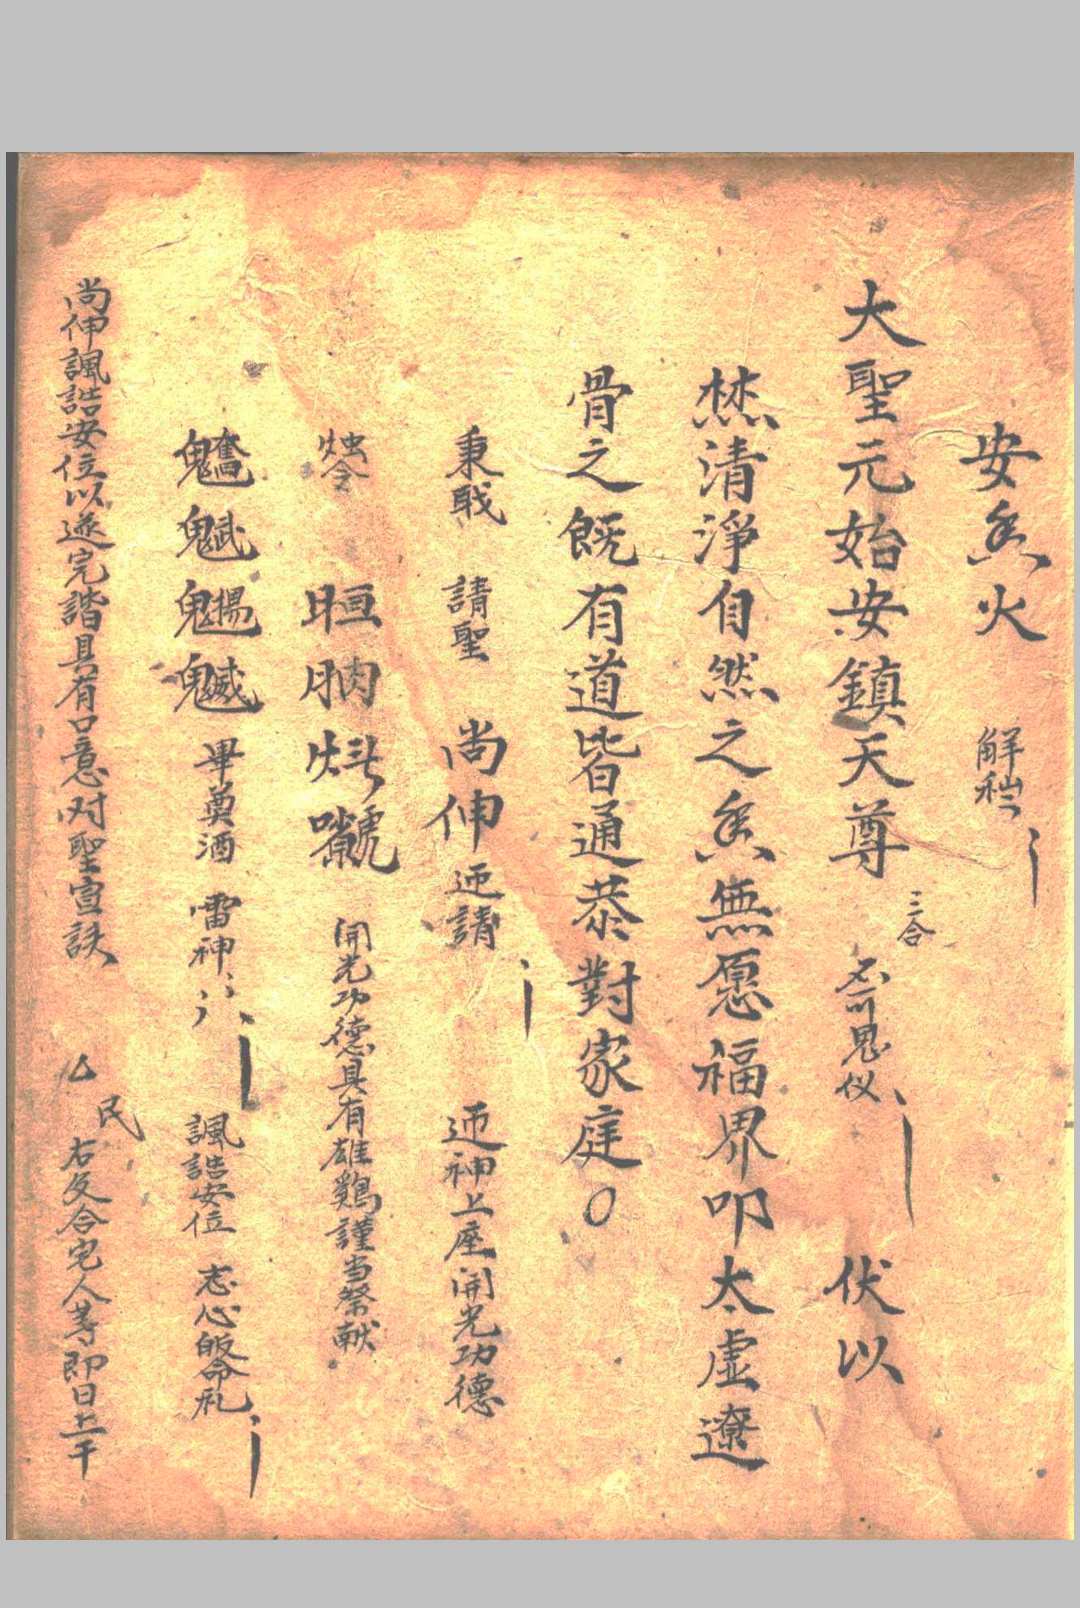 安香火 解穢
大聖元始安鎮天尊 三合 伏以
焚清淨自然之香無愿福界叩太虛遼
骨之既有道皆通恭對家庭〇
秉職 請聖 尚伸迎請 迎神上座開光功德
開光功德具有雄鷄謹当祭献
畢奠酒 雷神 諷誥安位 志心皈命礼
尚伸諷誥安位以遂完諧具有口意对聖宣詇 厶民右及合宅人等即日上干